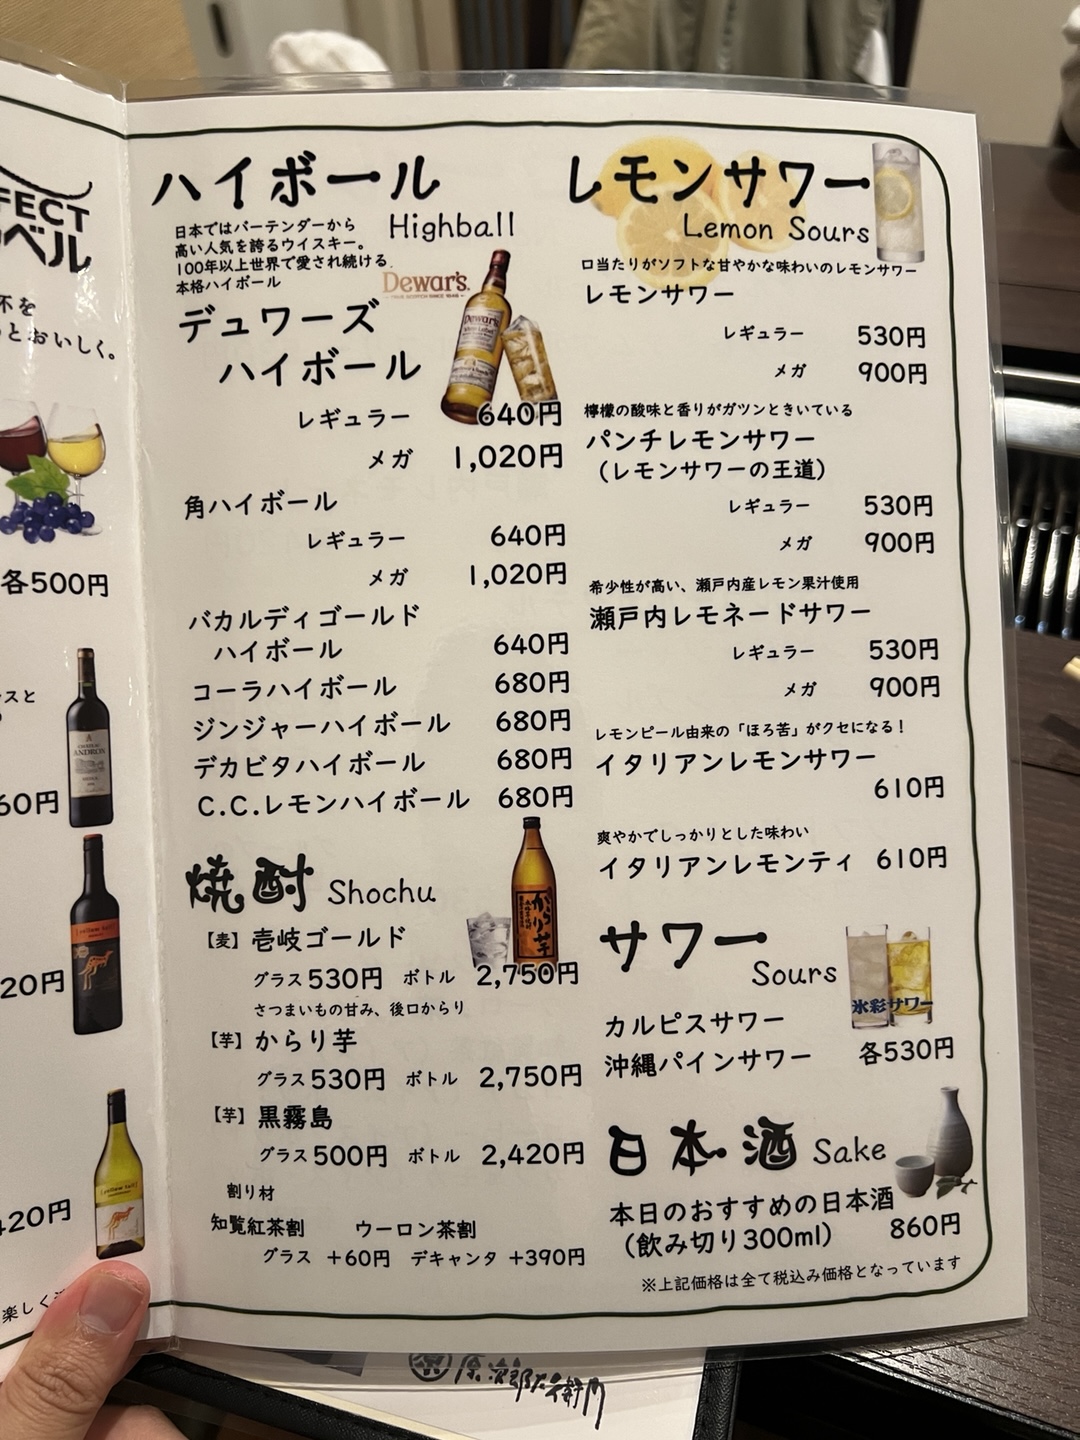 FECT
ベル
杯を
とおいしく。
各500円
スと
60円
20円
420円
楽しく
ハイボール
Highball
日本ではバーテンダーから
高い人気を誇るウイスキー。
100年以上世界で愛され続ける
本格ハイボール
Dewar's.
デュワーズ
ハイボール
レギュラー 640円
メガ 1,020円
角ハイボール
レギュラー 640円
メガ 1,020円
バカルディゴールド
ハイボール 640円
コーラハイボール 680円
ジンジャーハイボール 680円
デカビタハイボール 680円
C.C.レモンハイボール 680円
焼酎 Shochu
からり芋
【麦】壱岐ゴールド
グラス530円 ボトル 2,750円
さつまいもの甘み、後口からり
【芋】からり芋
グラス530円 ボトル 2,750円
【芋】黒霧島
グラス500円 ボトル 2,420円
割り材
知覧紅茶割 ウーロン茶割
グラス +60円 デキャンタ +390円
レモンサワー
Lemon Sours
口当たりがソフトな甘やかな味わいのレモンサワー
レモンサワー
レギュラー 530円
メガ 900円
檸檬の酸味と香りがガツンときいている
パンチレモンサワー
(レモンサワーの王道)
レギュラー 530円
メガ 900円
希少性が高い、瀬戸内産レモン果汁使用
瀬戸内レモネードサワー
レギュラー 530円
メガ 900円
レモンピール由来の「ほろ苦」がクセになる!
イタリアンレモンサワー
610円
爽やかでしっかりとした味わい
イタリアンレモンティ 610円
サワー
Sours
氷彩サワー
カルピスサワー
沖縄パインサワー 各530円
日本酒 Sake
本日のおすすめの日本酒
(飲み切り300ml) 860円
※上記価格は全て税込み価格となっています